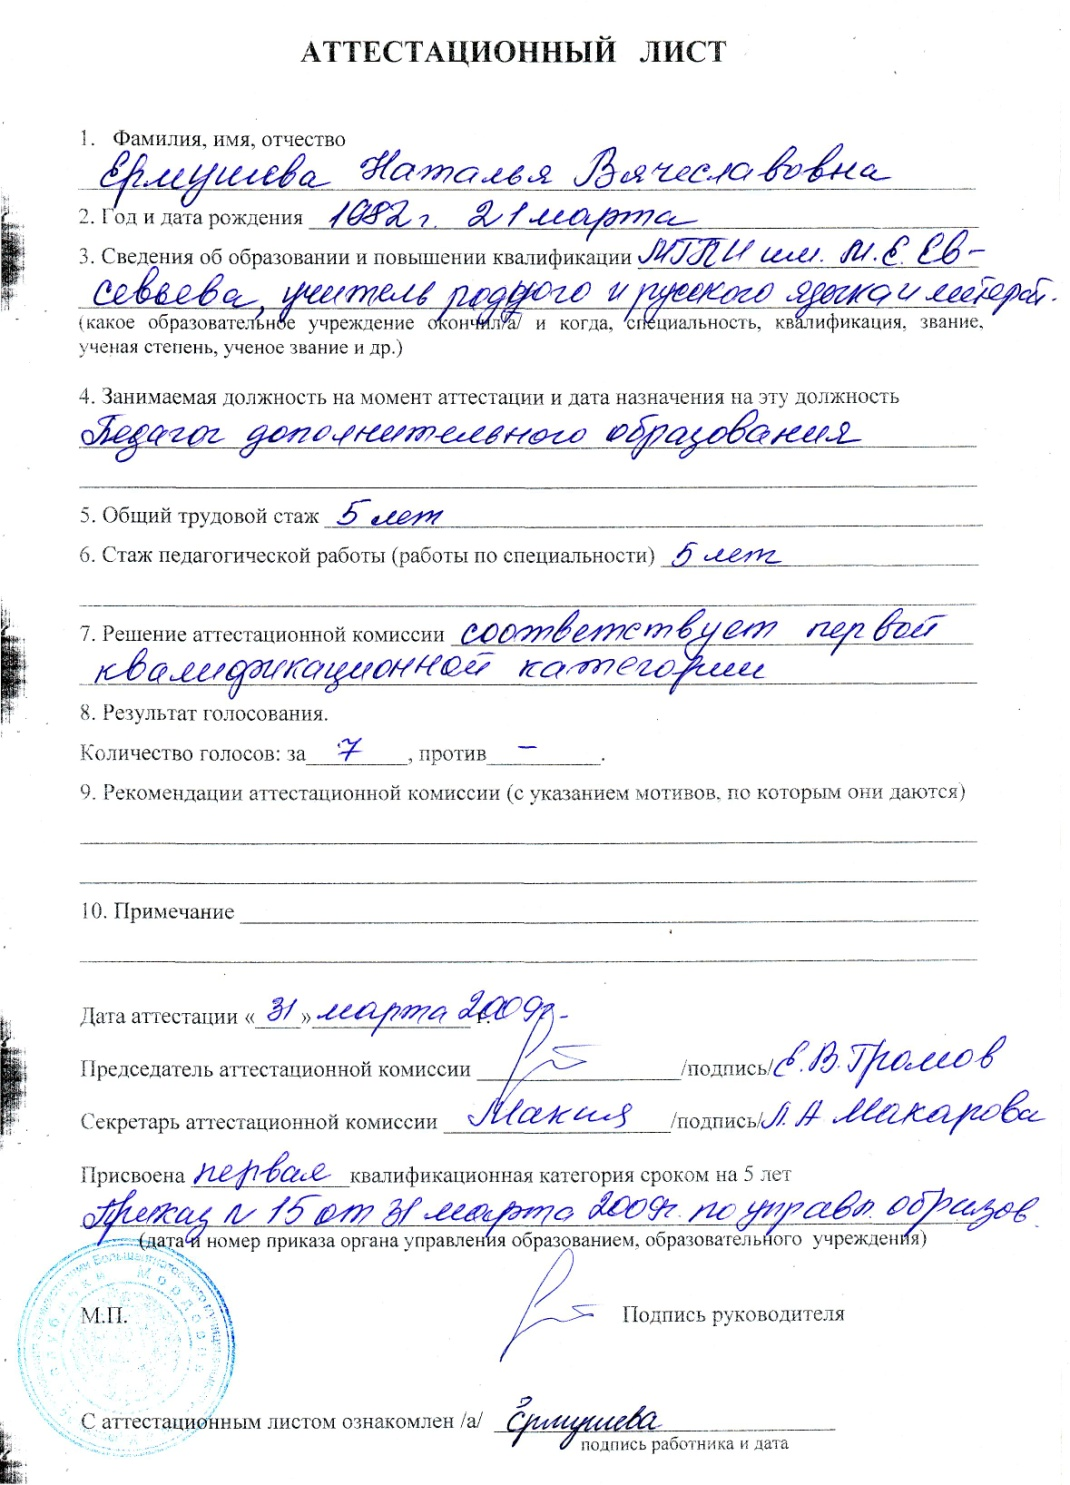 АТТЕСТАЦИОННЫЙ ЛИСТ
1. Фамилия, имя, отчество
Ермушева Наталья Вячеславовна
2. Год и дата рождения 1982 г. 21 марта
3. Сведения об образовании и повышении квалификации МГПИ им. М.Е. Ев-
севьева, учитель родного и русского языка и литерат.
(какое образовательное учреждение окончил/а/ и когда, специальность, квалификация, звание,
ученая степень, ученое звание и др.)
4. Занимаемая должность на момент аттестации и дата назначения на эту должность
Педагог дополнительного образования
5. Общий трудовой стаж 5 лет
6. Стаж педагогической работы (работы по специальности) 5 лет
7. Решение аттестационной комиссии соответствует первой
квалификационной категории
8. Результат голосования.
Количество голосов: за 7, против –.
9. Рекомендации аттестационной комиссии (с указанием мотивов, по которым они даются)
10. Примечание
Дата аттестации «31» марта 2009г.
Председатель аттестационной комиссии /подпись/ Е.В. Громов
Секретарь аттестационной комиссии /подпись/ Л.А Макарова
Присвоена первая квалификационная категория сроком на 5 лет
Приказ N 15 от 31 марта 2009г. по управл. образов.
(дата и номер приказа органа управления образованием, образовательного учреждения)
М.П. Подпись руководителя
С аттестационным листом ознакомлен /а/ Ермушева
подпись работника и дата